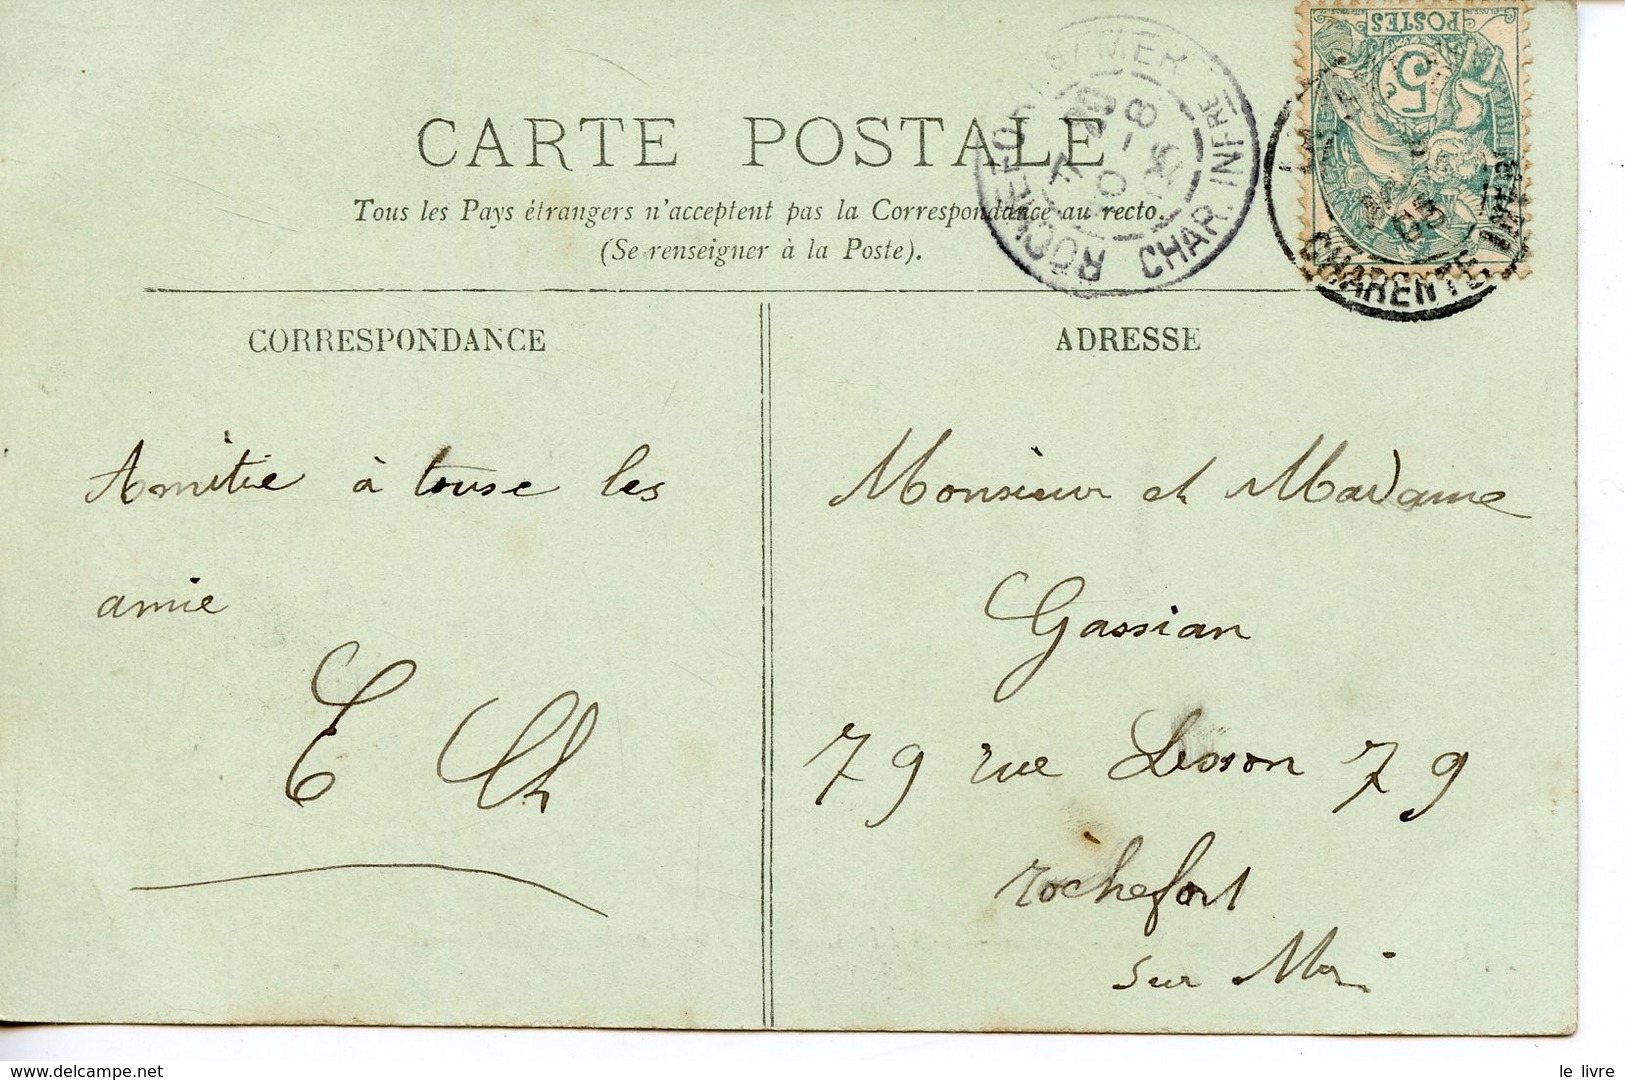 POSTES
5c
ROCHEFORT S/ MER
CHAR. INFRE
7 20
10 - 8
05
CHARENTE INFRE
05
CARTE POSTALE
Tous les Pays étrangers n'acceptent pas la Correspondance au recto.
(Se renseigner à la Poste).
CORRESPONDANCE
Amitie à touse les
amie
E Ch
ADRESSE
Monsieur et Madame
Gassian
79 rue Lesson 79
rochefort
sur Mer
le livre